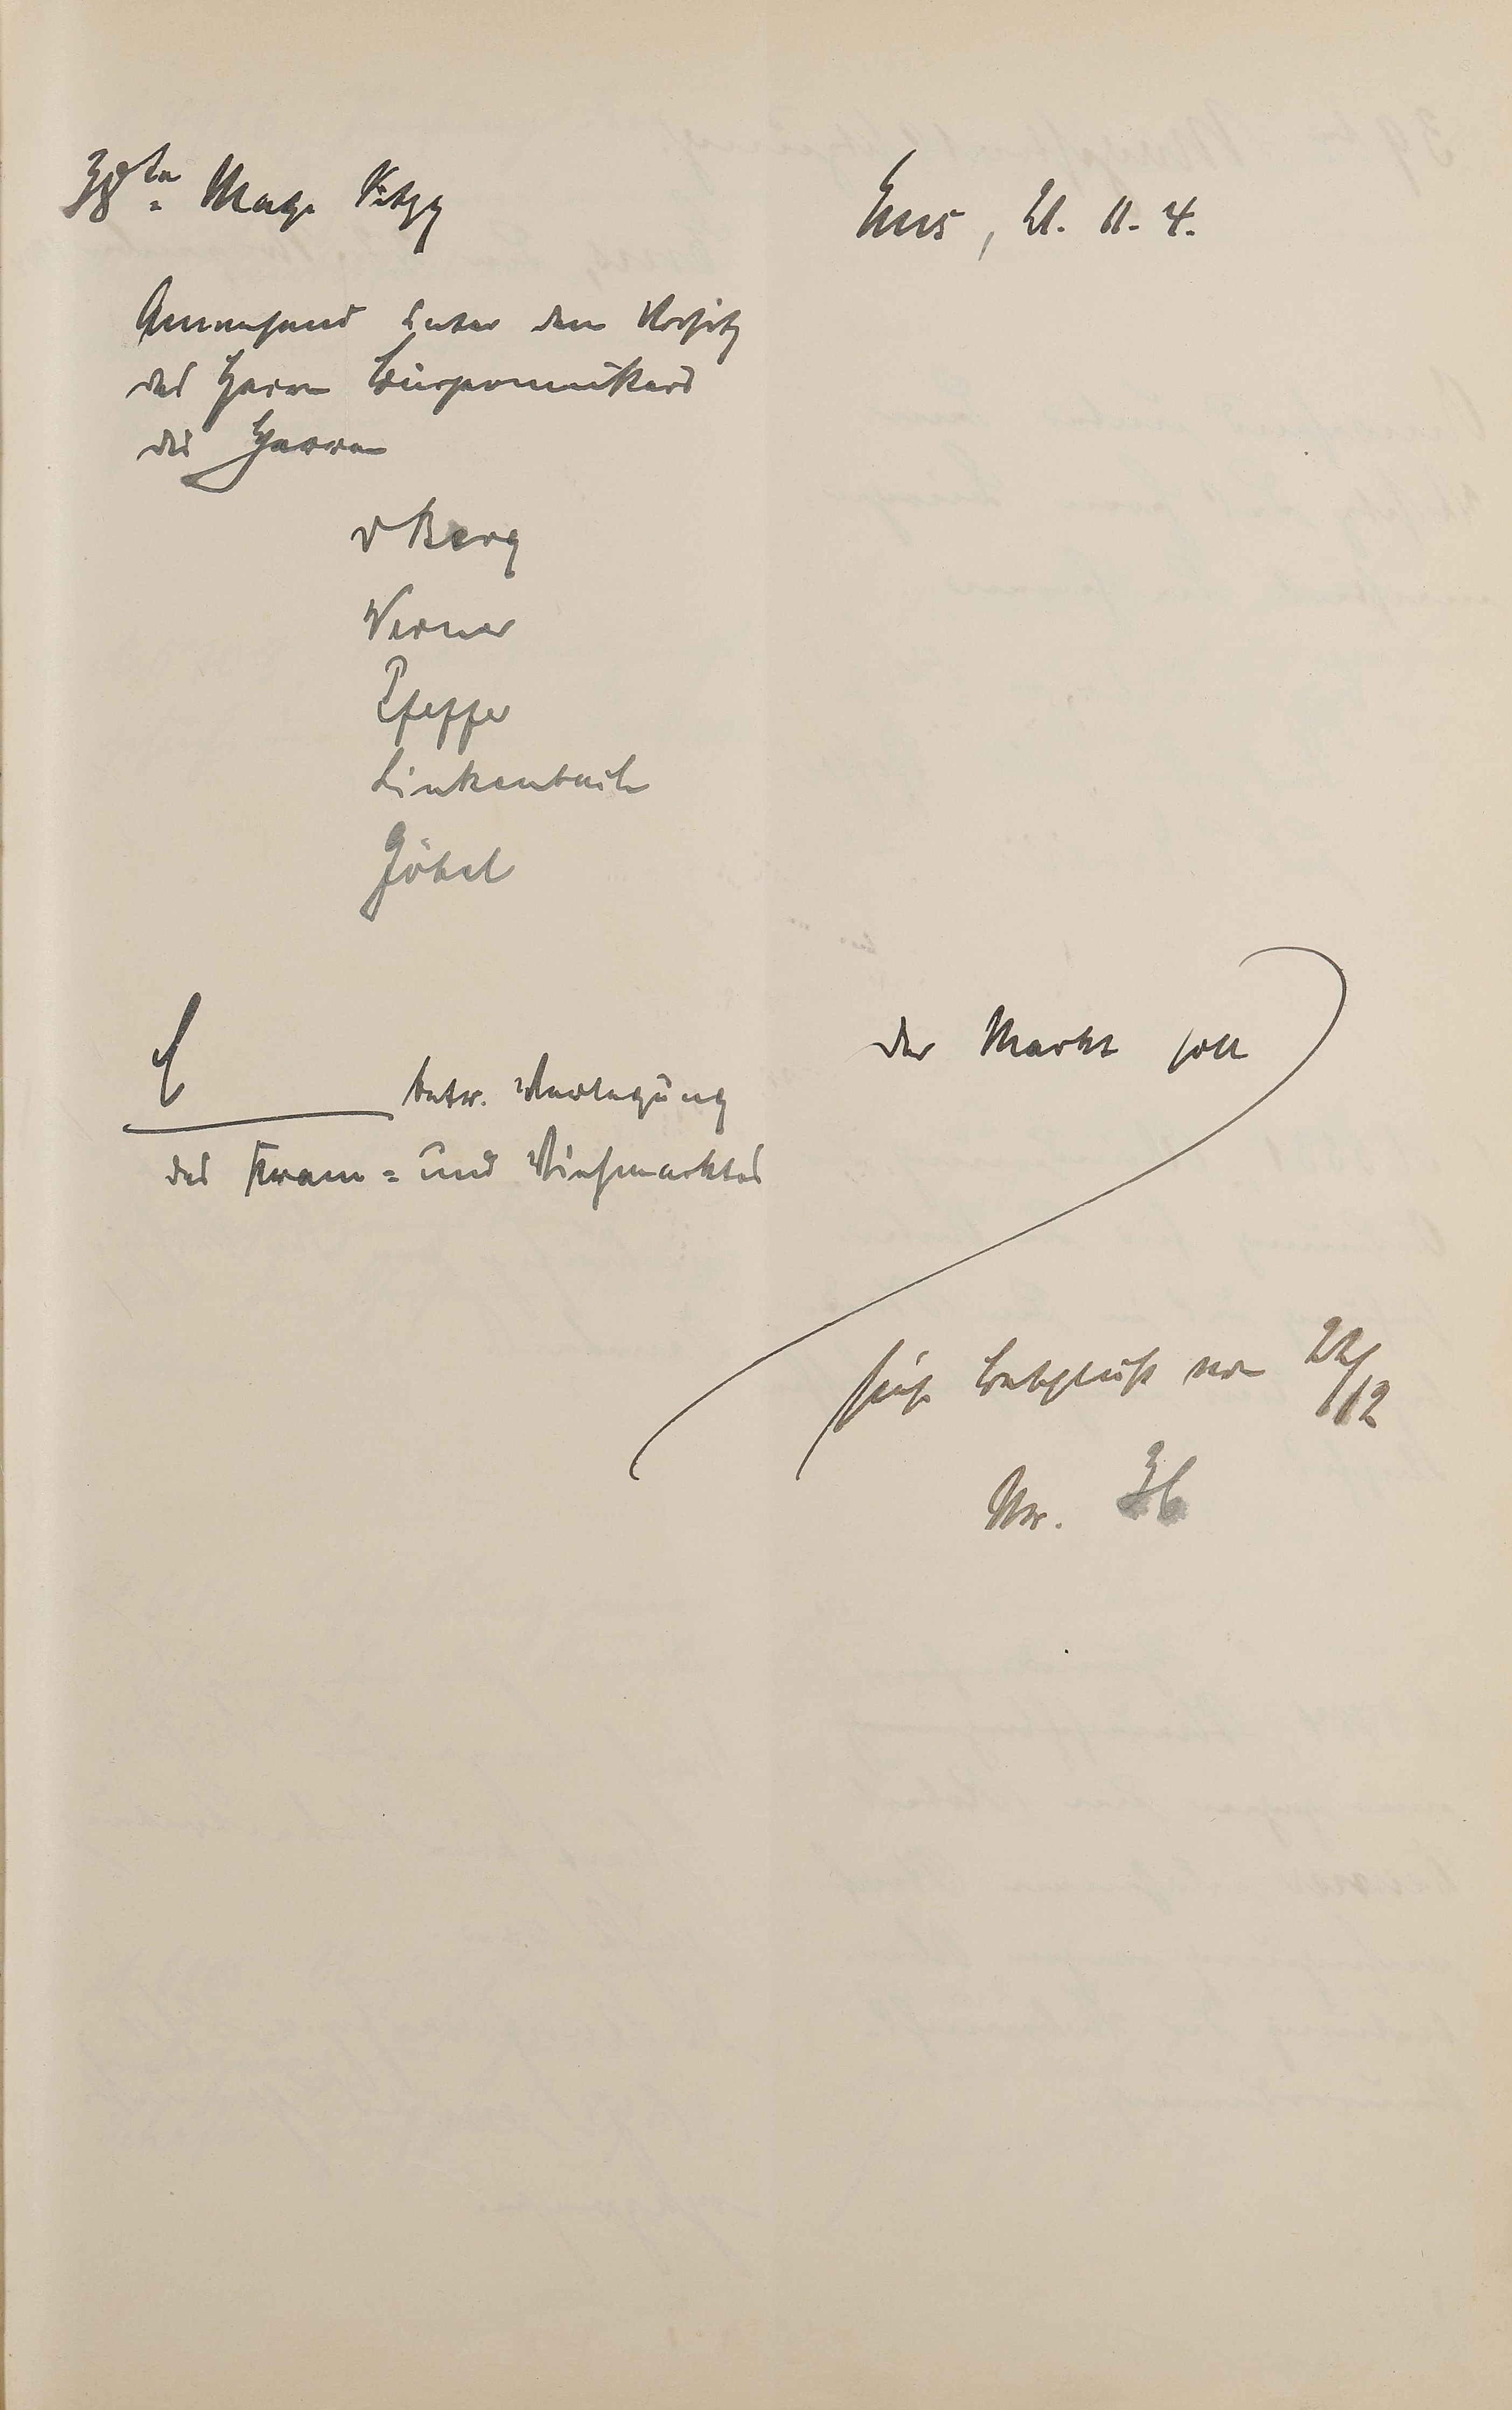 38te Mag. Sitzg
Ems, 21. 11. 4.
Anwesend unter dem Vorsitz
des Herrn Bürgermeisters
die Herren
v Berg
Werner
Pfeffer
Linkenbach
Göbel
1
Der Markt soll
betr. Verlegung
des Kram- und Viehmarktes
siehe Beschluß vom 22/12
Nr. 36